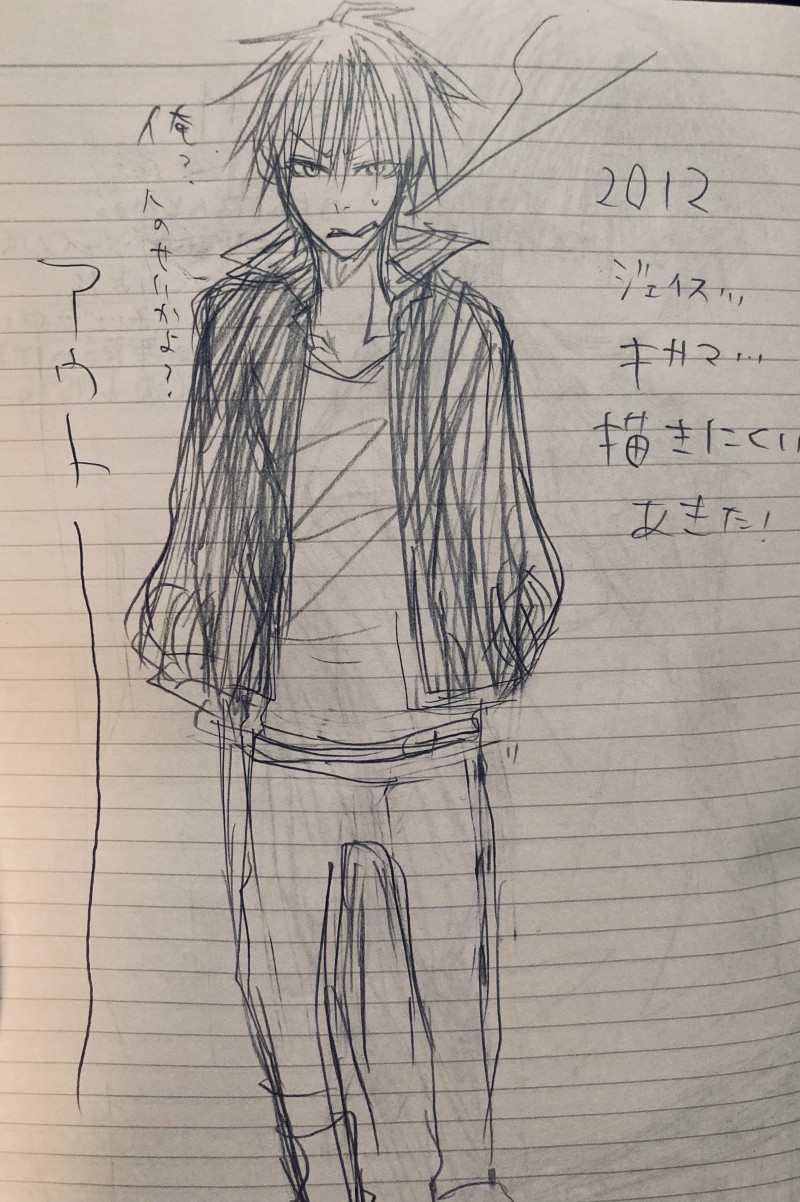 2012
ジェイス…
キサマ…
描きにくい
あきた!
俺?人のせいかよ?
アウトー